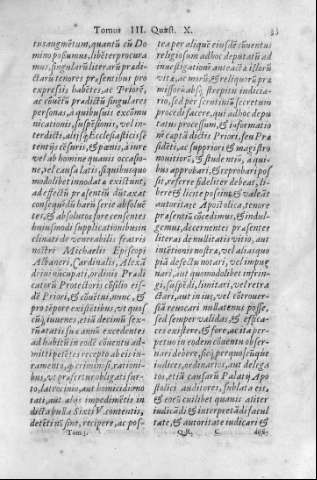 Tomus III. Quæst. X.
33
tus augmētum, quantū cū Do
mino possumus, libēter procura
mus, singularū literarū prædi-
ctarū tenores præsentibus pro
expressis habētes, ac Priorē,
ac cōuētū prædictū singulares
personas, a quibusuis excōmu
nicationis, suspēsionis, vel in
terdicti, alijsq; Ecclesiasticis sē
tentijs cēsuris, & pœnis, à iure
vel ab homine quauis occasio-
ne, vel causa latis, si quibus quo
modolibet innodatæ existunt,
ad effectū præsentiū dūtaxat
consequēdū harū serie absoluē
tes, & absolutos fore censentes
huiusmodi supplicationibus in
clinati de venerabilis fratris
nostri Michaelis Episcopi
Albaneñ, Cardinalis, Alexā
drini nūcupati, ordinis Prædi
catorū Protectoris cōsilio eis-
dē Priori, & cōuētui, nunc, &
pro tēpore existētibus, vt quos
cūq; iuuenes, etiā decimū sex-
tū ætatis suæ annū excedentes
ad habitū in eodē cōuentu ad-
mitti petētes recepto ab eis iu-
ramento, q; criminosi, rationi-
bus, vt præfertur obligati, fur-
to, latrocinio, aut homicidio no
tati, aut alijs impedimētis in
dicta bulla Sixti V. contentis,
detēti nō sint, recipere, ac pos-
Tom. j.
tea per aliquē eiusdē cōuentus
religiosum ad hoc deputatū ad
inuestigationē anteactæ illorū
vitæ, ac morū, & reliquorū præ
missorū absq; strepitu iudicia-
rio, sed per scrutiniū secretum
procedi facere, qui ad hoc depu
tatus processum, & informatio
nē captā dictis Priori, seu Præ
sidēti, ac superiori & magistro
nouitiorū, & studentiū, à qui-
bus approbari, & reprobari pos
sit, referre fideliter debeat, li-
berè & licitè possint, & valeāt
autoritate Apostolica, tenore
præsentiū cōcedimus, & indul-
gemus, decernentes præsentes
literas de nullitatis vitio, aut
intētionis nostræ, vel alio quo-
piā defectu notari, vel impug
nari, aut quomodolibet infrin-
gi, suspēdi, limitari, vel retra
ctari, aut in ius, vel cōtrouer-
siā reuocari nullatenus posse,
sed semper validas, & effica-
ces existere, & fore, ac ita per-
petuo in eodem cōuentu obser-
uari debere, sicq; per quoscūque
iudices, ordinarios, aut delega-
tos, etiā causarū Palatij Apo
stolici auditores, sublata eis,
& eorū cuilibet quauis aliter
iudicādi & interpretādi facul
tate, & autoritate iudicari &
Qõs. C
defi-